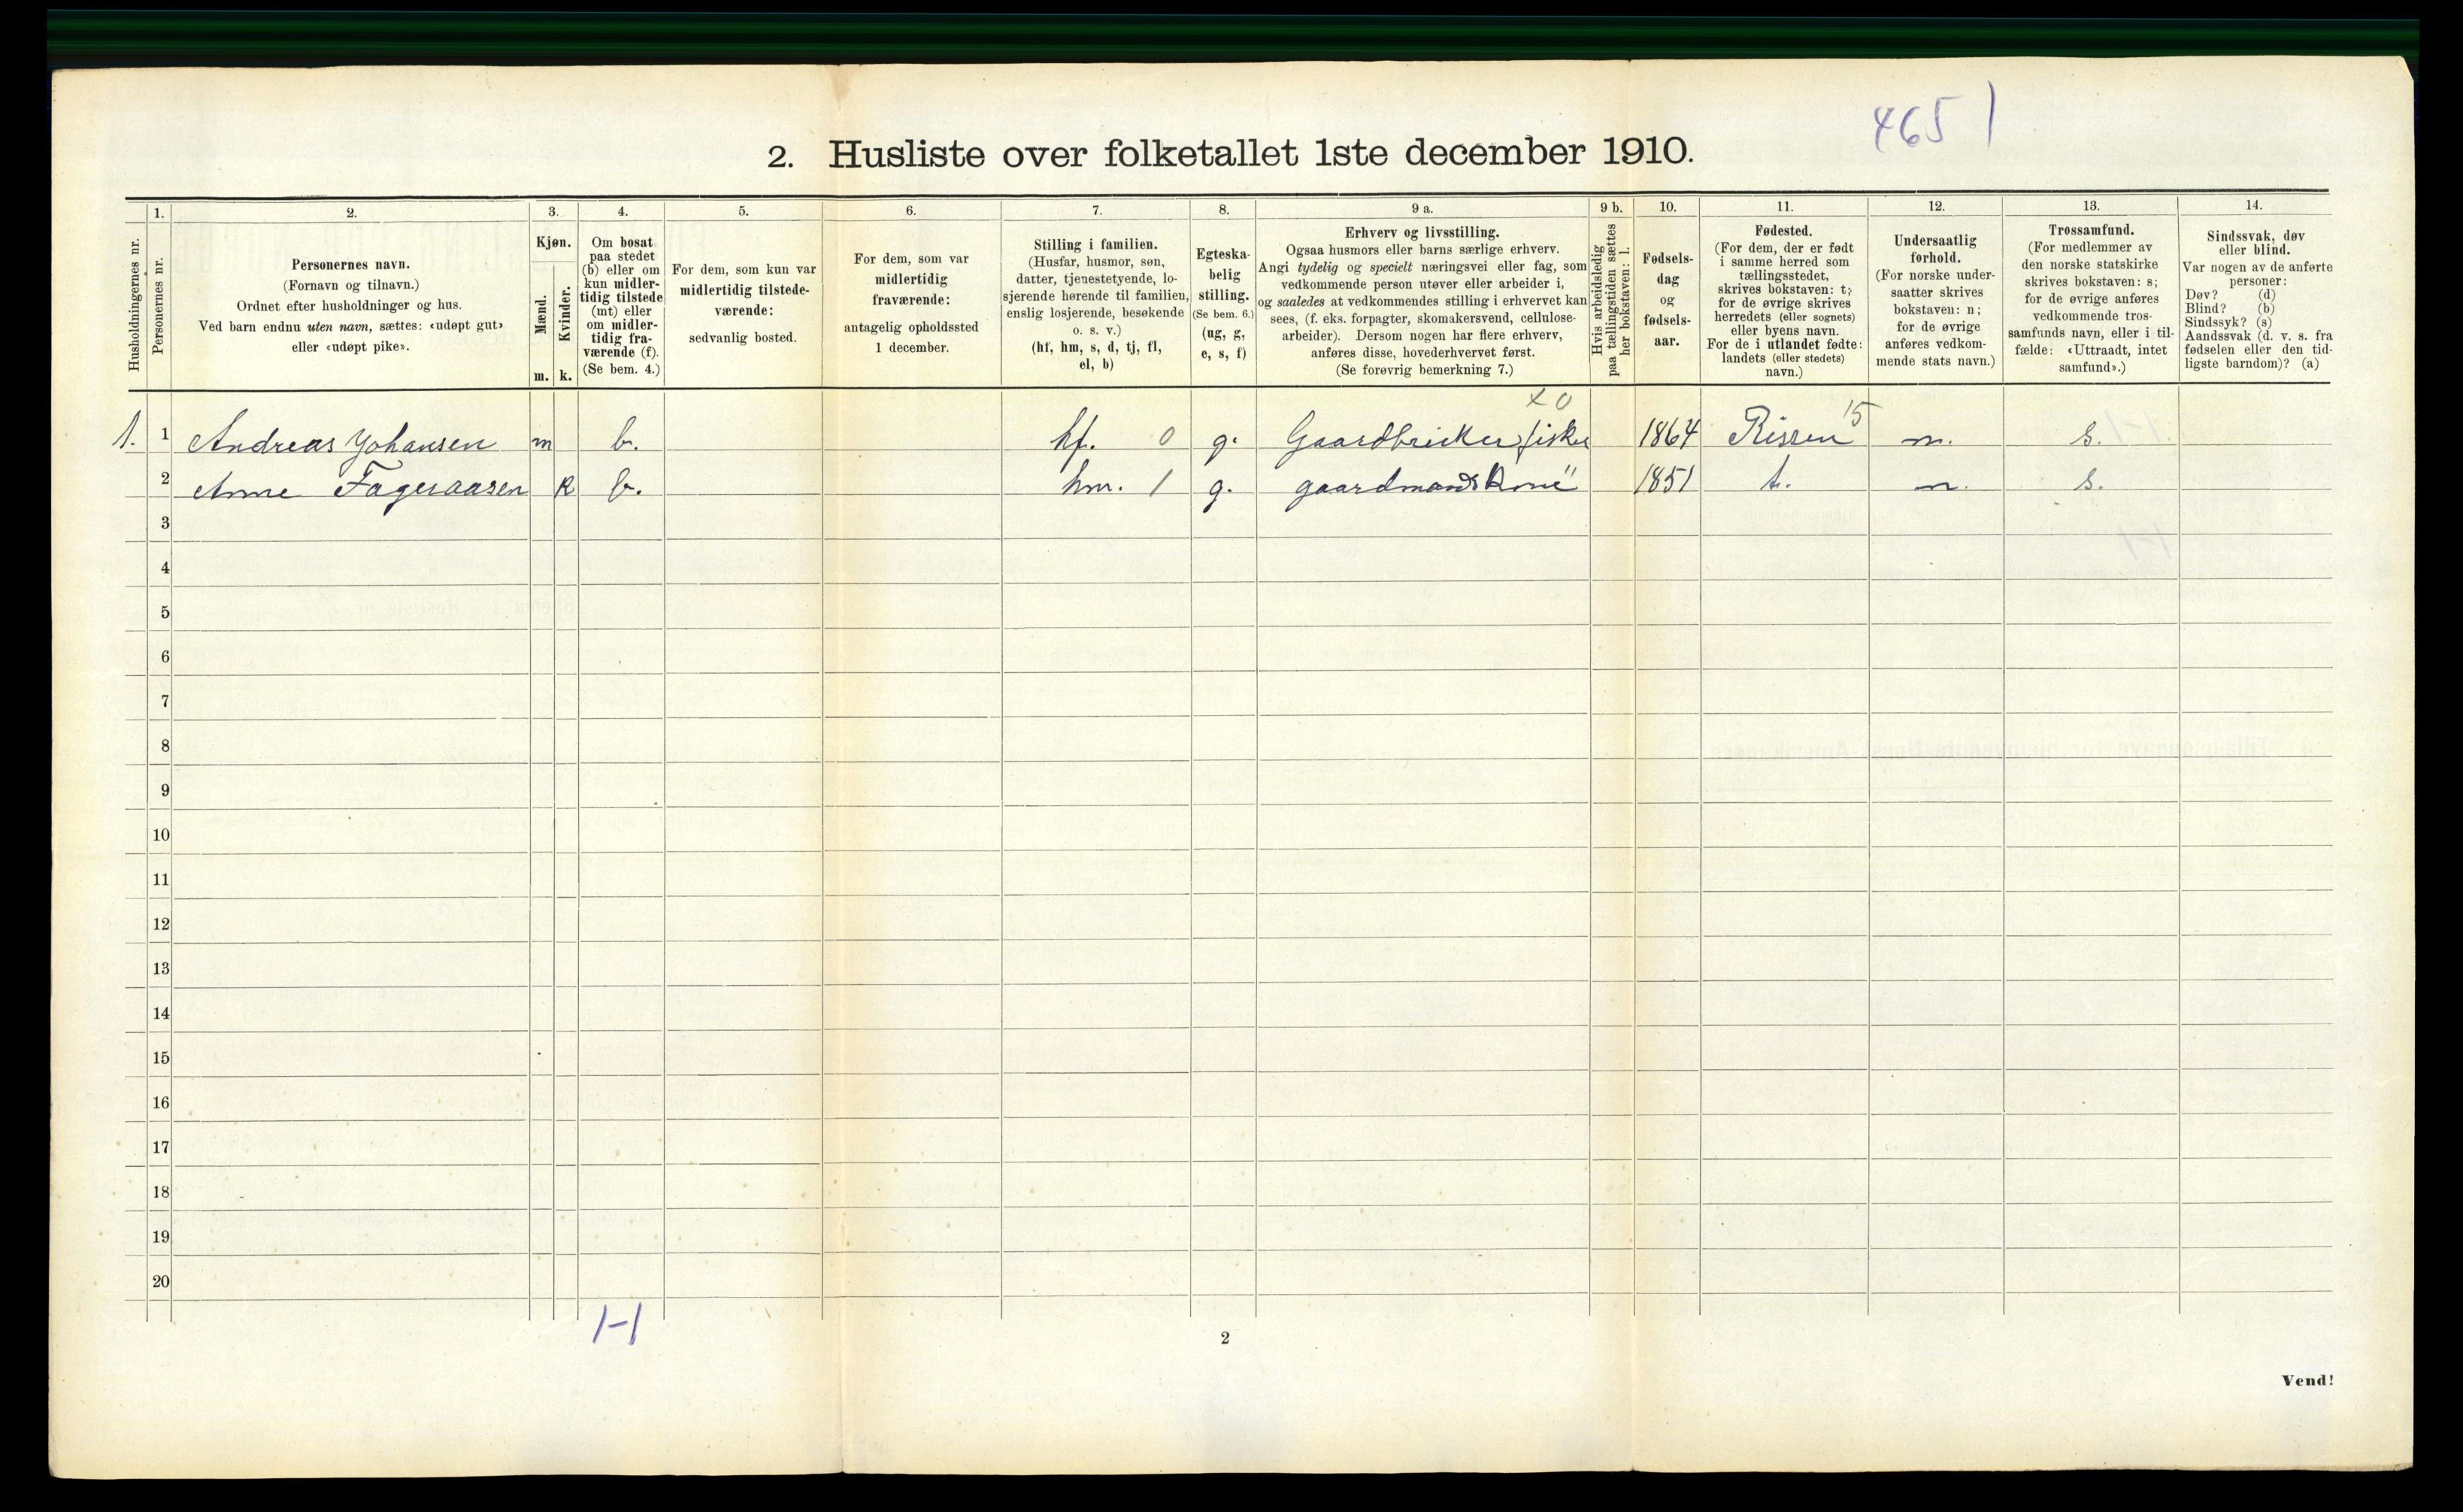 465 1
2. Husliste over folketallet 1ste december 1910.
Husholdningernes nr.
1.
Personernes nr.
2.
Personernes navn.
(Fornavn og tilnavn.)
Ordnet efter husholdninger og hus.
Ved barn endnu uten navn, sættes: «udøpt gut»
eller «udøpt pike».
3.
Kjøn.
Mænd.
Kvinder.
m. k.
4.
Om bosat
paa stedet
(b) eller om
kun midler-
tidig tilstede
(mt) eller
om midler-
tidig fra-
værende (f).
(Se bem. 4.)
5.
For dem, som kun var
midlertidig tilstede-
værende:
sedvanlig bosted.
6.
For dem, som var
midlertidig
fraværende:
antagelig opholdssted
1 december.
7.
Stilling i familien.
(Husfar, husmor, søn,
datter, tjenestetyende, lo-
sjerende hørende til familien,
enslig losjerende, besøkende
o. s. v.)
(hf, hm, s, d, tj, fl,
el, b)
8.
Egteska-
belig
stilling.
(Se bem. 6.)
(ug, g,
e, s, f)
9 a.
Erhverv og livsstilling.
Ogsaa husmors eller barns særlige erhverv.
Angi tydelig og specielt næringsvei eller fag, som
vedkommende person utøver eller arbeider i,
og saaledes at vedkommendes stilling i erhvervet kan
sees, (f. eks. forpagter, skomakersvend, cellulose-
arbeider). Dersom nogen har flere erhverv,
anføres disse, hovederhvervet først.
(Se forøvrig bemerkning 7.)
9 b.
Hvis arbeidsledig
paa tællingstiden sættes
her bokstaven: l.
10.
Fødsels-
dag
og
fødsels-
aar.
11.
Fødested.
(For dem, der er født
i samme herred som
tællingsstedet,
skrives bokstaven: t;
for de øvrige skrives
herredets (eller sognets)
eller byens navn.
For de i utlandet fødte:
landets (eller stedets)
navn.)
12.
Undersaatlig
forhold.
(For norske under-
saatter skrives
bokstaven: n;
for de øvrige
anføres vedkom-
mende stats navn.)
13.
Trossamfund.
(For medlemmer av
den norske statskirke
skrives bokstaven: s;
for de øvrige anføres
vedkommende tros-
samfunds navn, eller i til-
fælde: «Uttraadt, intet
samfund».)
14.
Sindssvak, døv
eller blind.
Var nogen av de anførte
personer:
Døv? (d)
Blind? (b)
Sindssyk? (s)
Aandssvak (d. v. s. fra
fødselen eller den tid-
ligste barndom)? (a)
x 0
1. 1 Andreas Johansen m b. hf. 0 g. Gaardbruker fisker 1864 Rissen 15 n. s.
2 Anne Fageraasen k b. hm. 1 g. gaardmandskone 1851 t. n. s.
3
4
5
6
7
8
9
10
11
12
13
14
15
16
17
18
19
20
1-1
2
Vend!